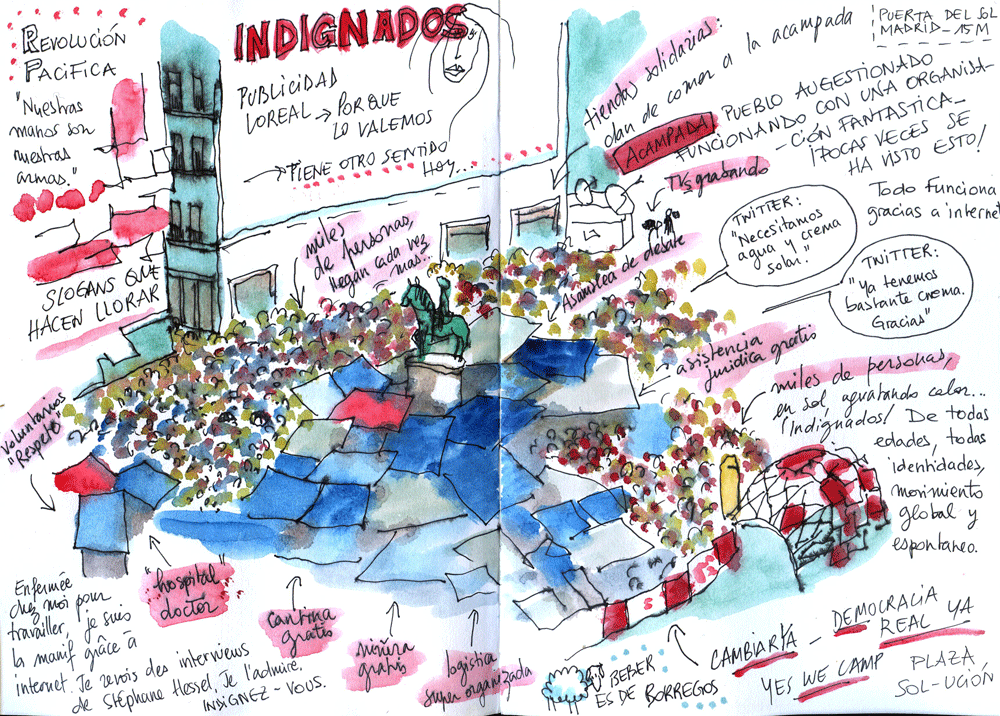 REVOLUCIÓN
PACIFICA
"Nuestras
manos son
nuestras
armas."
SLOGANS QUE
HACEN LLORAR
INDIGNADOS
PUBLICIDAD
LOREAL → PORQUE
LO VALEMOS
→ TIENE OTRO SENTIDO
HOY...
miles
de personas,
llegan cada vez
mas...
voluntarios
"Respeto"
Enfermée
chez moi pour
travailler, je suis
la manif grâce à
internet. Je revois des interviews
de Stéphane Hessel. Je l'admire.
INDIGNEZ-VOUS.
"hospital"
doctor
cantina
gratis
niñera
gratis
logistica
super organizada
PUERTA DEL SOL
MADRID-15M
tiendas solidarias:
dan de comer a la acampada
ACAMPADA PUEBLO AUGESTIONADO
FUNCIONANDO CON UNA ORGANISA-
-CIÓN FANTASTICA-
¡POCAS VECES SE
HA VISTO ESTO!
TVs grabando
Todo funciona
gracias a internet
TWITTER:
"Necesitamos
agua y crema
solar."
TWITTER:
"Ya tenemos
bastante crema.
Gracias"
Asamblea de debate
asistencia
juridica gratis
miles de personas,
en sol, aguatando calor...
¡Indignados! De todas
edades, todas
identidades,
movimiento
global y
espontaneo.
BEBER
ES DE BORREGOS
CAMBIARÍA - DEMOCRALIA
REAL YA
YES WE CAMP
PLAZA
SOL-UCIÓN